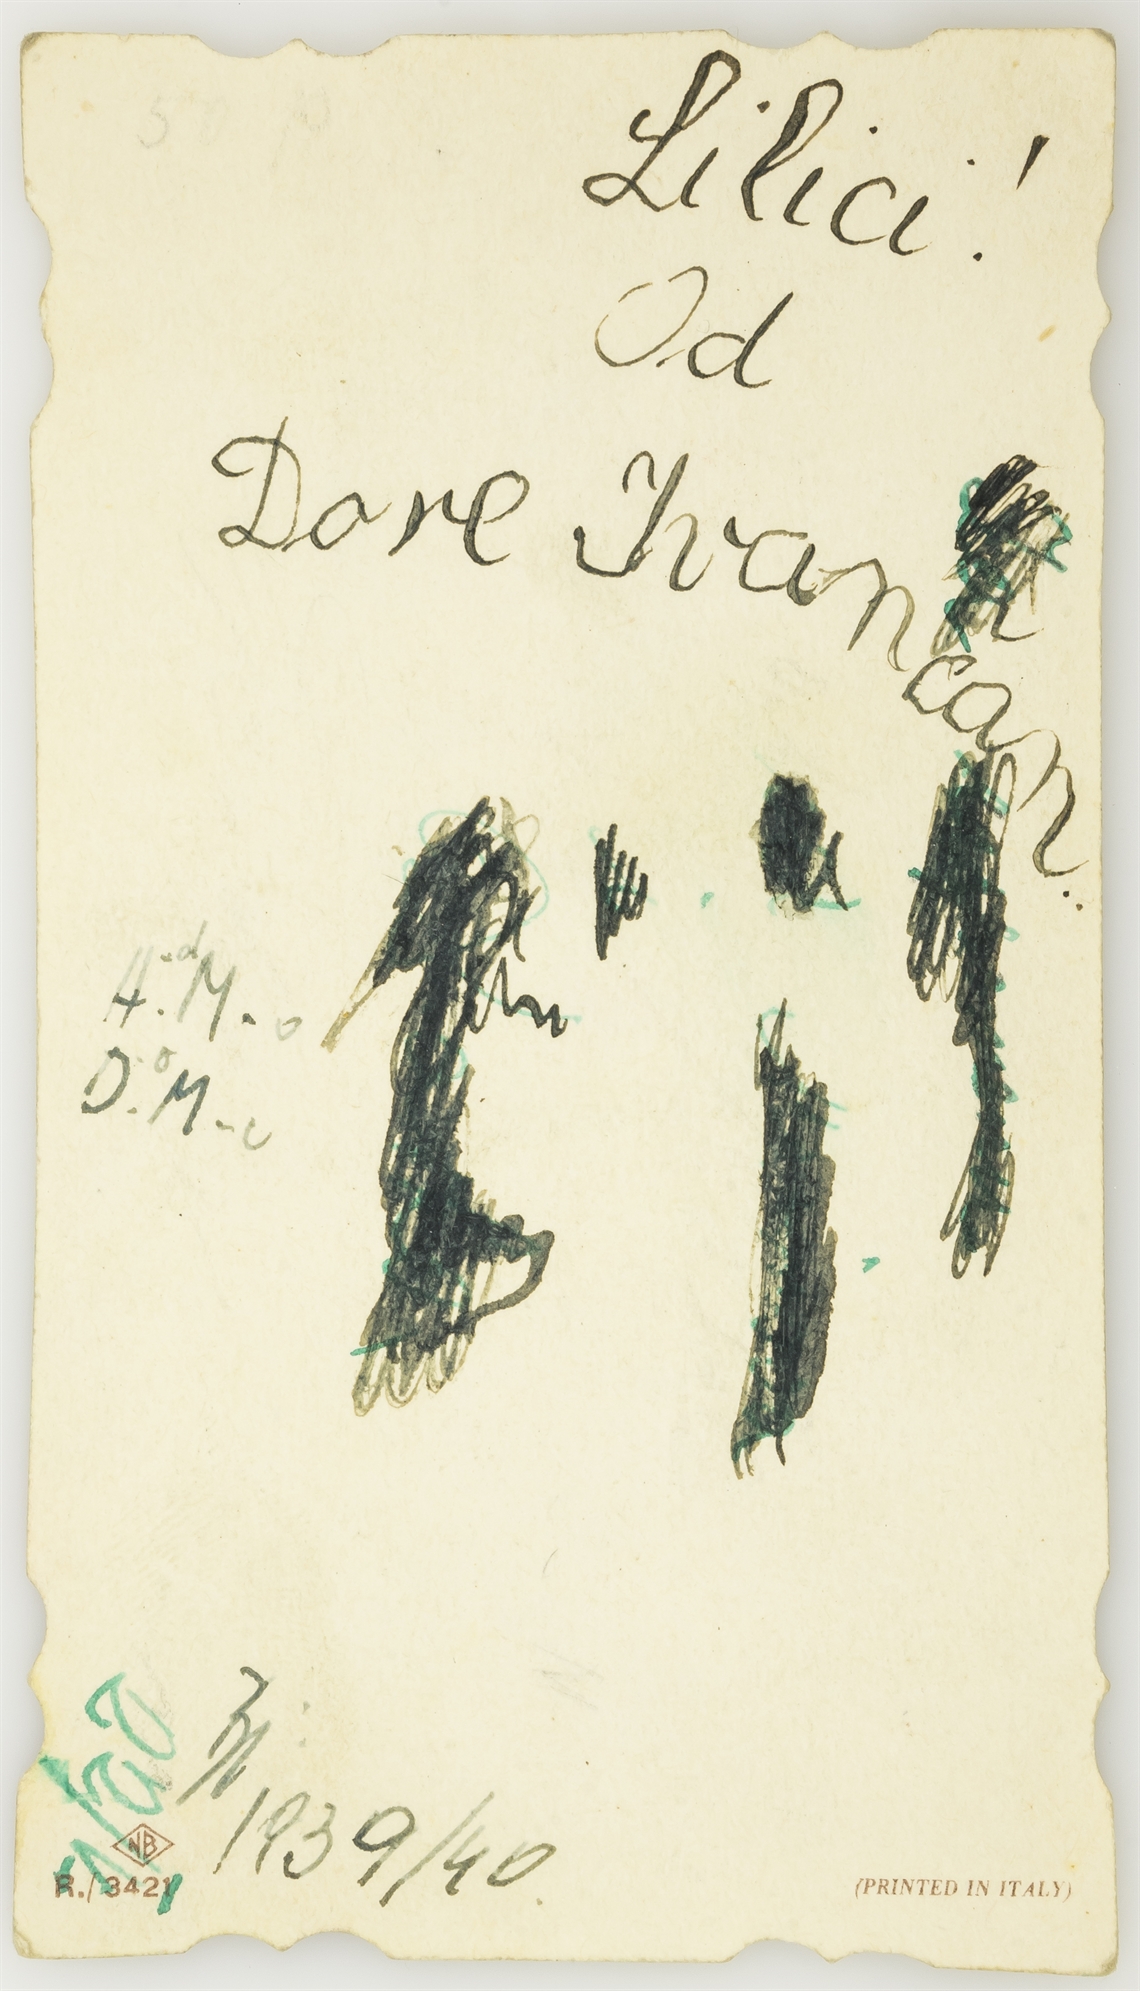 Lilici!
Od
Dore Ivancan.
H.M.
D.M.
1939/40.
NB
R./3421
(PRINTED IN ITALY)